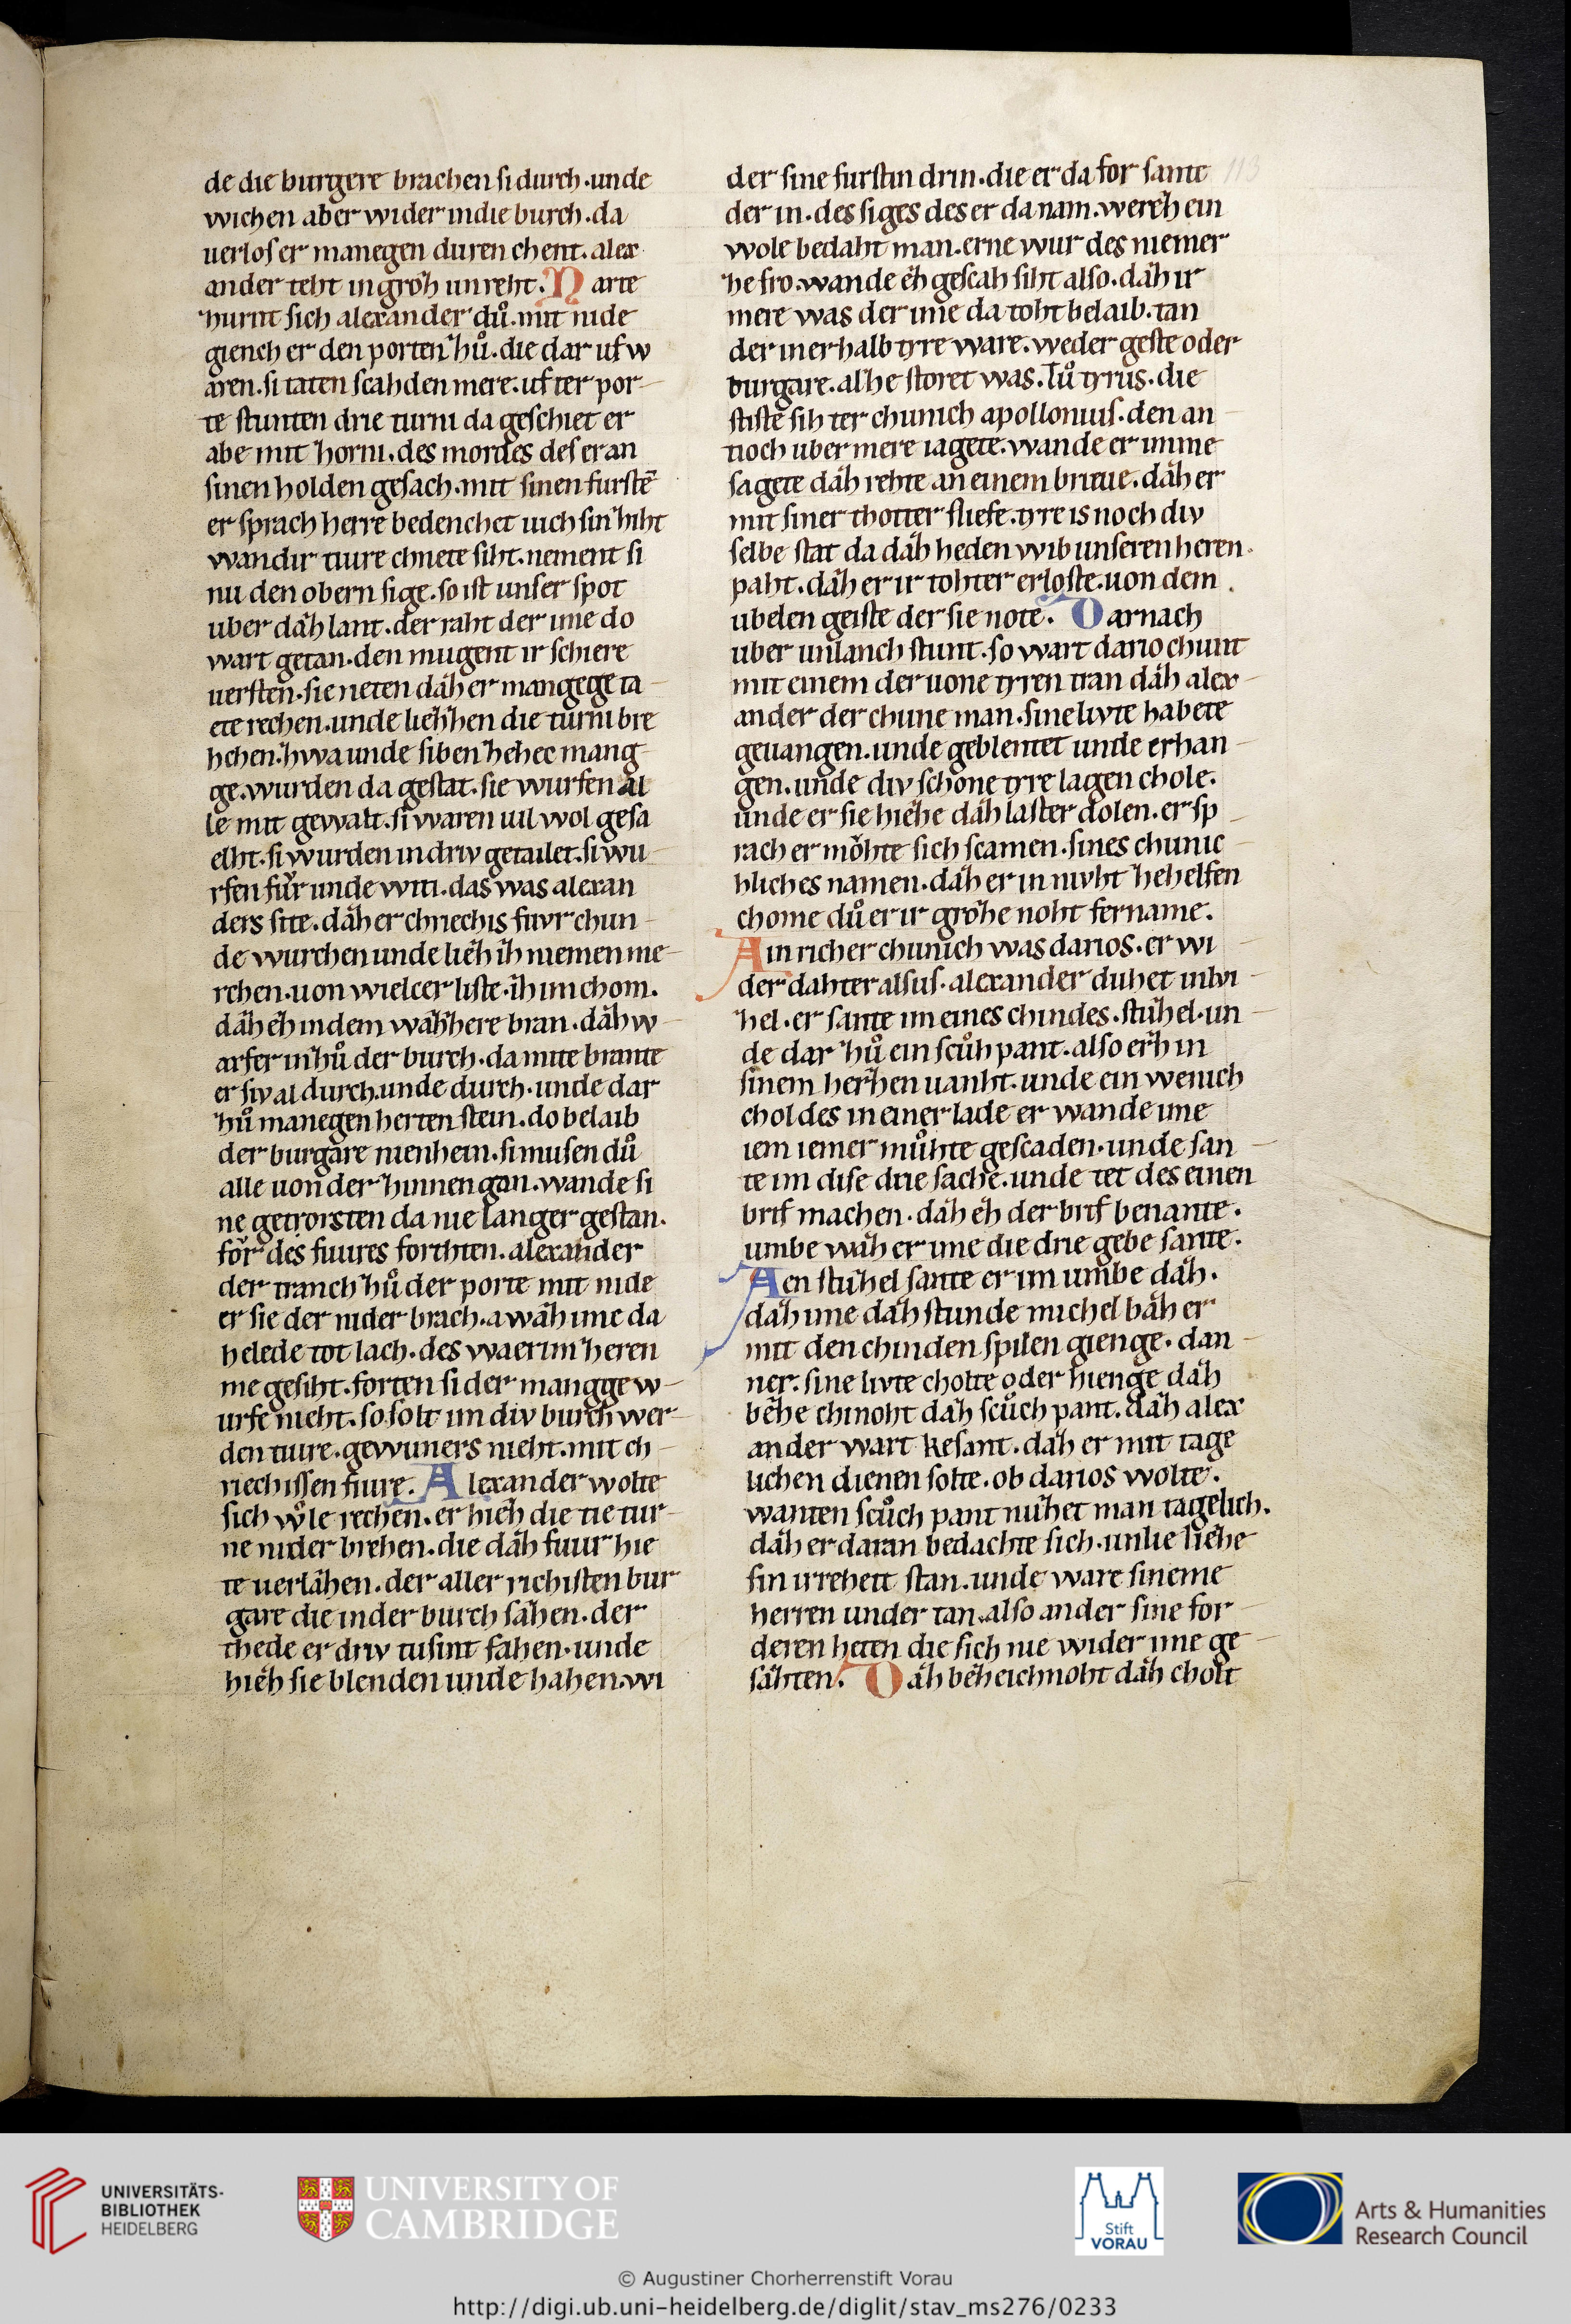 de die burgere brachen si durch. unde
wichen aber wider in die burch. da
uerlos er manegen duren chent. alex
ander teht in groz unreht. Harte
zurnt sich alexander dů. mit nide
giench er den porten zů. die dar uf w
aren. si taten scahden mere. uf ter por
te stunten drie turni da geschiet er
abe mit zorni. des mordes des er an
sinen holden gesach. mit sinen furstē
er sprach herre bedenchet uich sin ziht
wandir tiure chnete siht. nement si
nu den obern sige. so ist unser spot
uber daz lant. der raht der ime do
wart getan. den mugent ir schiere
uersten. sie rieten daz er mangege ta
ete rechen. unde liezzen die turni bre
hchen. zwa unde siben zehec mang
ge. wurden da gestat. sie wurfen al
le mit gewalt. si waren uil wol gesa
elht. si wurden in driv getailet. si wu
rfen für unde witi. das was alexan
ders site. daz er chriechis fuvr chun
de wurchen unde liez iz niemen me
rchen. uon wielcer liste iz im chom.
daz ez in dem wazzere bran. daz w
arf er in zů der burch. da mite brante
er siv al durch. unde durch. unde dar
zů manegen herten stein. do belaib
der burgare nienhein. si musen dů
alle uon der zinnen gan. wande si
ne getrorsten da nie langer gestan.
för des fuures forchten. alexander
der tranch zů der porte mit nide
er sie der nider brach. awaz ime da
helede tot lach. des waer im zeren
me gesiht. forten si der mangge w
urfe nieht. so solt im div burch wer
den tiure. gewuners nieht. mit ch
riechissen fiure. Alexander wolte
sich wöle rechen. er hiez die tie tur
ne nider brehen. die daz fuur hie
te uerlazen. der aller richisten bur
gare die in der burch sazen. der
thede er driv tusint fahen. unde
hiez sie blenden unde hahen. wi
der sine furstin drin. die er da for sante
der in. des siges des er da nam. werchz ein
wole bedaht man. erne wurdes niemer
ze fro. wande ez gescah siht also. daz ir
mere was der ime da toht belaib. tan
der inerhalb tyre ware. weder geste oder
burgare. al ze storet was. Tů tyrus. die
stiste sih ter chunich apollonius. den an
tioch uber mere iagete. wande er imme
sagete daz rehte an einem briue. daz er
mit siner thotter sliefe. tyre is noch div
selbe stat da daz heden wib unseren heren
paht. daz er ir tohter erloste. uon dem
ubelen geiste der sie note. Darnach
uber unlanch stunt. so wart dario chunt
mit einem der uone tyren tran daz alex
ander der chune man. sine livte habete
geuangen. unde geblentet unde erhan
gen. unde div schone tyre lagen chole.
unde er sie hieze daz laster dolen. er sp
rach er möhte sich scamen. sines chunic
hliches namen. daz er in nivht ze helfen
chome dů er ir groze noht fername.
Ain richer chunich was darios. er wi
der dahter alsus. alexander duhet in lvi
zel. er sante im eines chindes. stuzel. un
de dar zů ein scůh pant. also erz in
sinem herzen uanht. unde ein wenich
choldes in einer lade er wande ime
iem iemer můhte gescaden. unde san
te im dise drie sache. unde tet des einen
brif machen. daz ez der brif benante.
umbe waz er ime die drie gebe sante.
Aen stuzel sante er im umbe daz.
daz ime daz stunde michel baz er
mit den chinden spilen gienge. dan
ner. sine livte cholte oder hienge daz
beze chinoht daz scůch pant. daz alex
ander wart kesant. daz er mit tage
lichen dienen solte. ob darios wolte.
wanten scůch pant nuzet man tagelich.
daz er daran bedachte sich. unlie lieze
sin irreheit stan. unde ware sineme
herren under tan. also ander sine for
deren heten die sich nie wider ime ge
sazten. Daz bezeichnoht daz cholt
113
UNIVERSITÄTS-
BIBLIOTHEK
HEIDELBERG
UNIVERSITY OF
CAMBRIDGE
Stift
VORAU
Arts & Humanities
Research Council
© Augustiner Chorherrenstift Vorau
http://digi.ub.uni-heidelberg.de/diglit/stav_ms276/0233